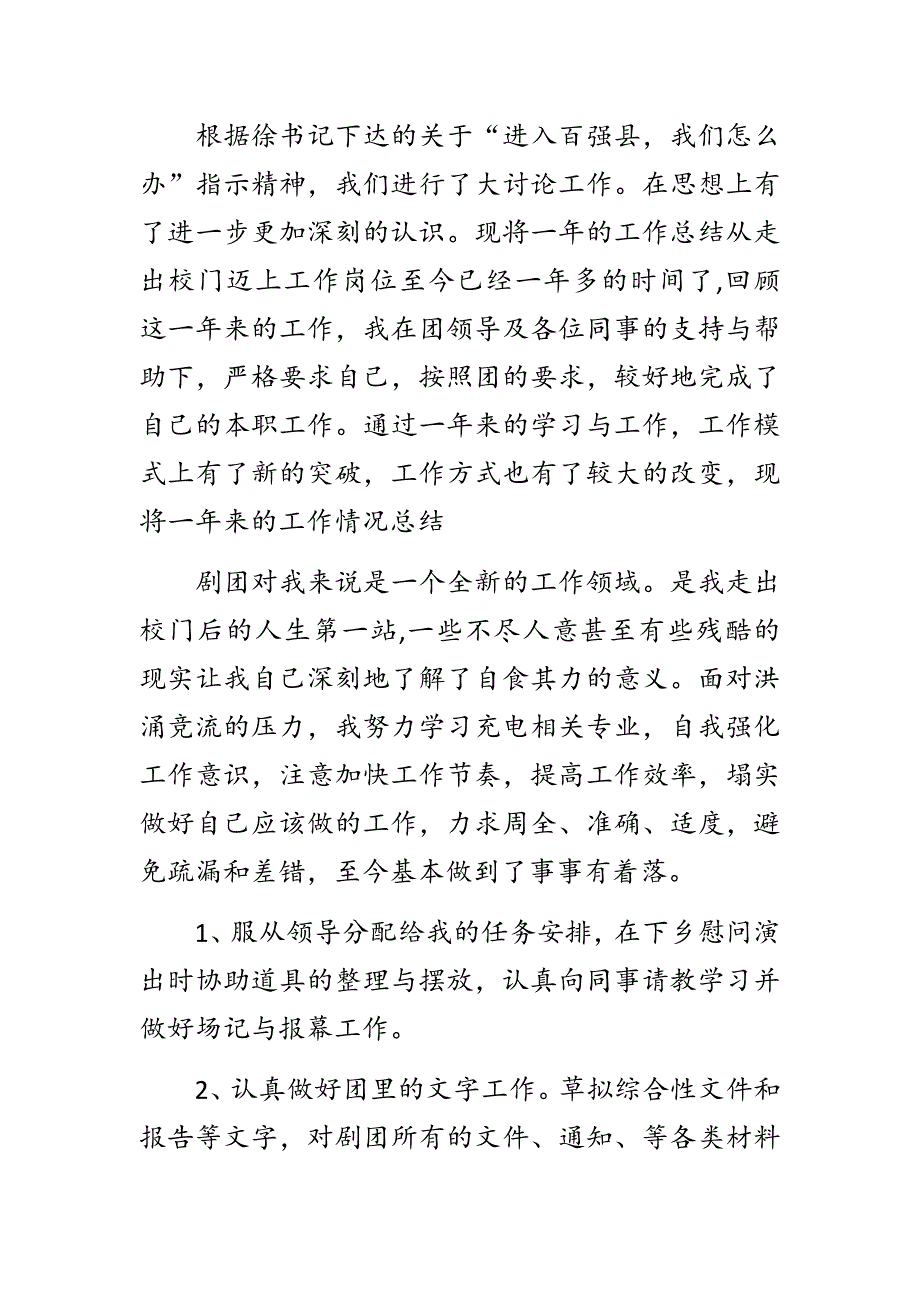 根据徐书记下达的关于“进入百强县，我们怎么
办”指示精神，我们进行了大讨论工作。在思想上有
了进一步更加深刻的认识。现将一年的工作总结从走
出校门迈上工作岗位至今已经一年多的时间了,回顾
这一年来的工作，我在团领导及各位同事的支持与帮
助下，严格要求自己，按照团的要求，较好地完成了
自己的本职工作。通过一年来的学习与工作，工作模
式上有了新的突破，工作方式也有了较大的改变，现
将一年来的工作情况总结
剧团对我来说是一个全新的工作领域。是我走出
校门后的人生第一站,一些不尽人意甚至有些残酷的
现实让我自己深刻地了解了自食其力的意义。面对洪
涌竞流的压力，我努力学习充电相关专业，自我强化
工作意识，注意加快工作节奏，提高工作效率，塌实
做好自己应该做的工作，力求周全、准确、适度，避
免疏漏和差错，至今基本做到了事事有着落。
1、服从领导分配给我的任务安排，在下乡慰问演
出时协助道具的整理与摆放，认真向同事请教学习并
做好场记与报幕工作。
2、认真做好团里的文字工作。草拟综合性文件和
报告等文字，对剧团所有的文件、通知、等各类材料